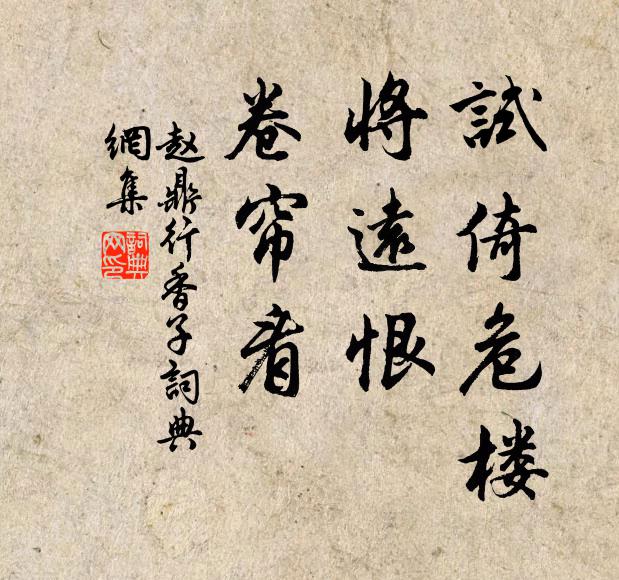 試倚危楼
將遠恨
卷帘看
赵鼎行香子詞典
網集
詞典
网印